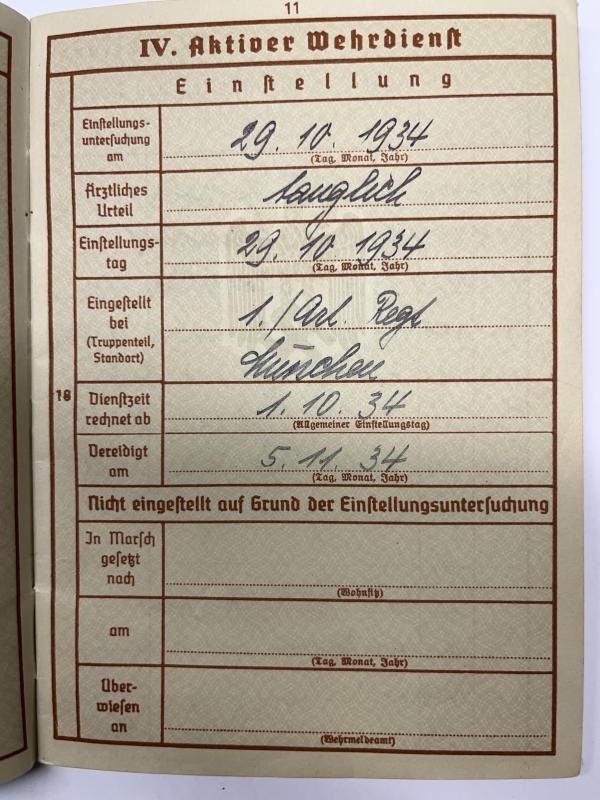 11
IV. Aktiver Wehrdienst
Einstellung
Einstellungs-
untersuchung
am
29. 10. 1934
(Tag, Monat, Jahr)
Ärztliches
Urteil
tauglich
Einstellungs-
tag
29. 10 1934
(Tag, Monat, Jahr)
Eingestellt
bei
(Truppenteil,
Standort)
1./Art. Regt
München
18
Dienstzeit
rechnet ab
1. 10. 34
(Allgemeiner Einstellungstag)
Vereidigt
am
5. 11. 34
(Tag, Monat, Jahr)
Nicht eingestellt auf Grund der Einstellungsuntersuchung
In Marsch
gesetzt
nach
(Wohnsitz)
am
(Tag, Monat, Jahr)
Über-
wiesen
an
(Wehrmeldeamt)